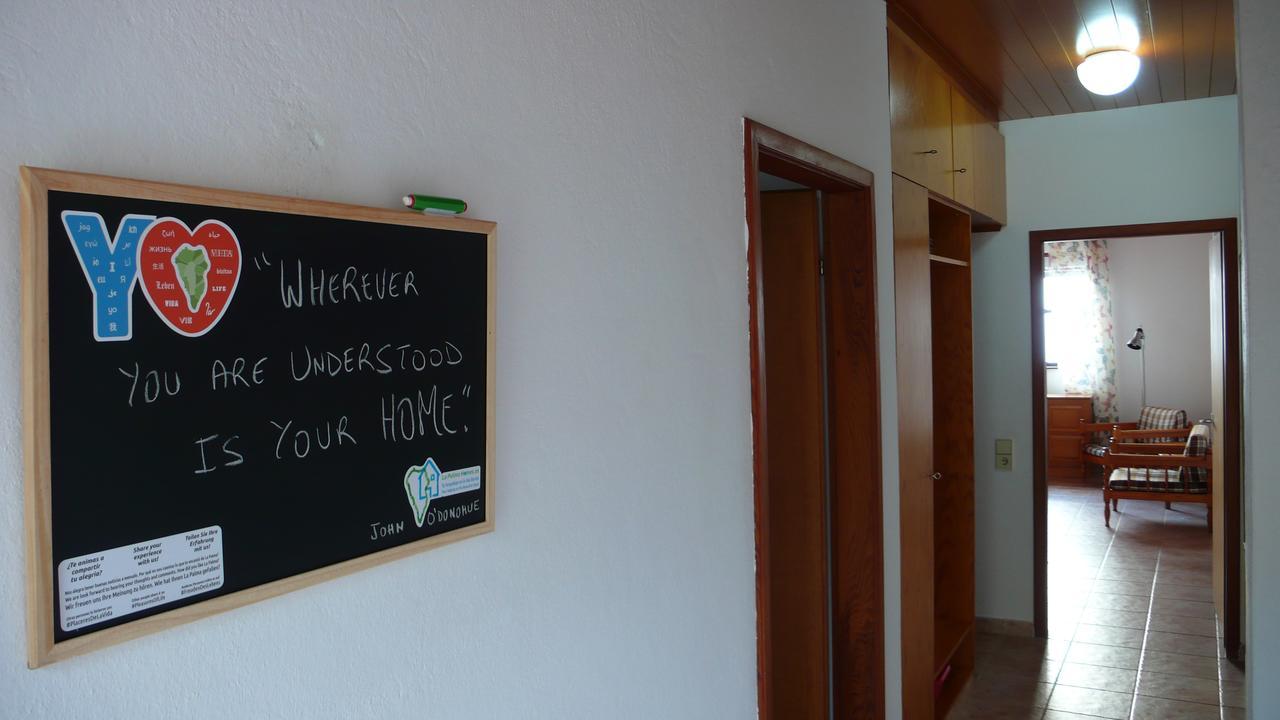 Y
"WHEREVER
YOU ARE UNDERSTOOD
IS YOUR HOME."
JOHN O'DONOHUE
jag
εγώ
ich
io
I
Я
eu
Je
yo
我
ζωή
жизнь
生活
Leben
VIDA
VIE
LIFE
¿Te animas a compartir tu alegría?
Share your experience with us!
Teilen Sie Ihre Erfahrung mit uns!
We are look forward to hearing your thoughts and comments. How did you like La Palma?
Wir freuen uns Ihre Meinung zu hören. Wie hat Ihnen La Palma gefallen?
#PlaceresDeLaVida
#PleasuresOfLife
#FreudenDesLebens